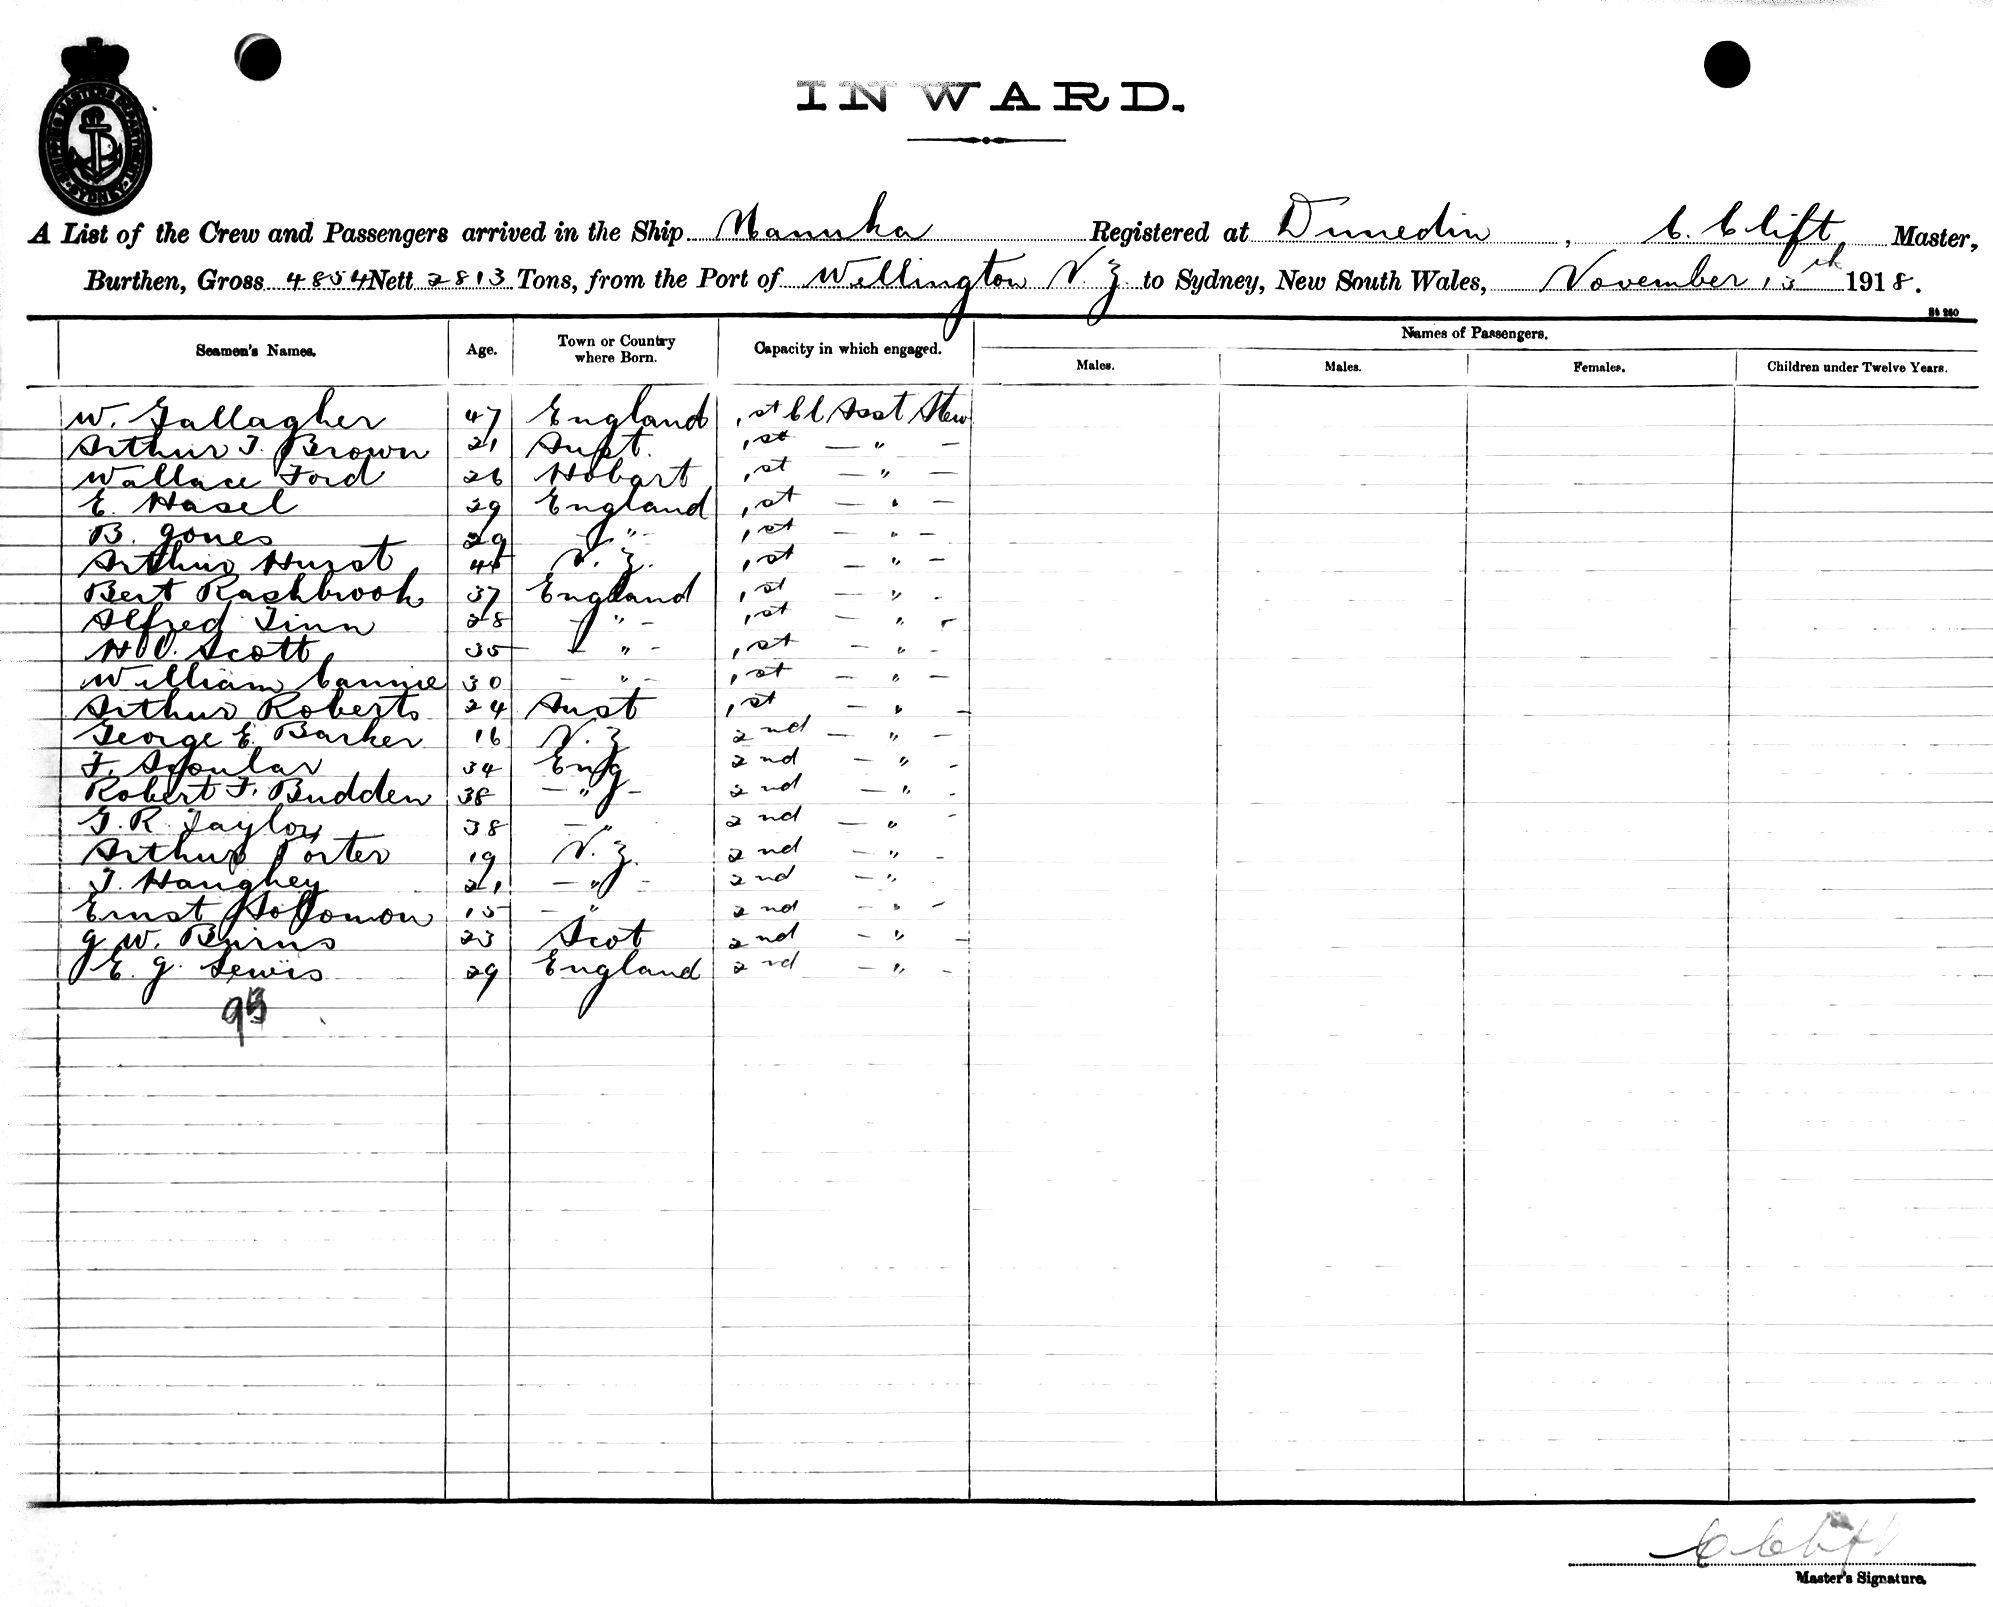 SHIPPING MASTERS DEPARTMENT SYDNEY
INWARD.
A List of the Crew and Passengers arrived in the Ship Manuka Registered at Dunedin, C. Clift, Master,
Burthen, Gross 4854 Nett 2813 Tons, from the Port of Wellington N.Z. to Sydney, New South Wales, November 13th 1918.
Seamen's Names. Age. Town or Country where Born. Capacity in which engaged. Names of Passengers.
Males. Males. Females. Children under Twelve Years.
W. Gallagher 47 England 1st Cl Asst Stew
Arthur T. Brown 21 Aust. 1st — " —
Wallace Ford 26 Hobart 1st — " —
E. Hasel 29 England 1st — " —
B. Jones 29 - " - 1st — " —
Arthur Hurst 45 N.Z. 1st — " —
Bert Rashbrook 37 England 1st — " -
Alfred Tinn 28 - " - 1st — " -
H Scott 35 - " - 1st — " -
William Cannie 30 - " - 1st — " —
Arthur Roberts 24 Aust 1st — " —
George E. Barker 16 N.Z 2nd — " —
F. 34 Eng 2nd — " -
Robert F. Budden 38 - " - 2nd — " -
G. R. Taylor 38 - " 2nd — " -
Arthur Porter 19 N.Z. 2nd — " -
J. Haughey 21 - " - 2nd — "
Ernst Solomon 15 - " 2nd - " -
J. W. Burns 23 Scot 2nd - " -
E. J. Lewis 29 England 2nd - " -
C Clift
Master's Signature.